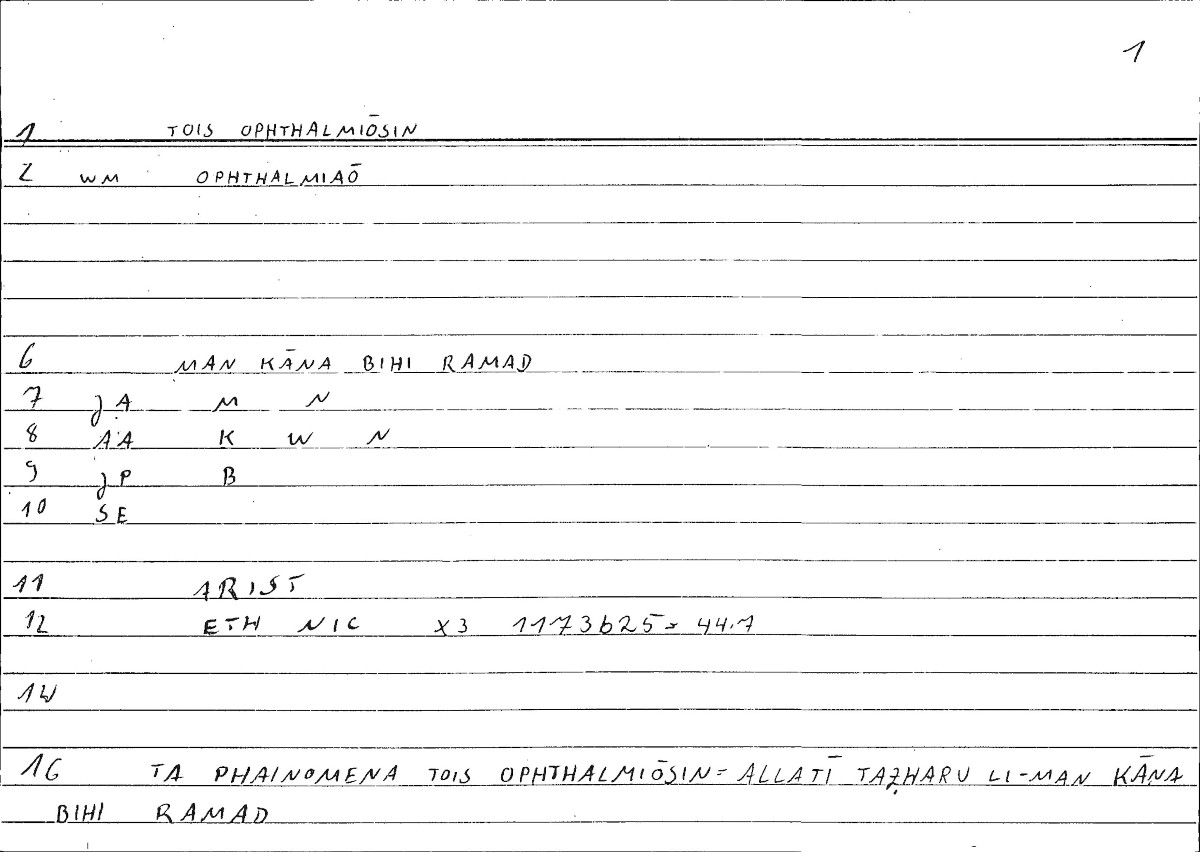 1
1 TOIS OPHTHALMIŌSIN
2 WM OPHTHALMIAŌ
6 MAN KĀNA BIHI RAMAD
7 JA M N
8 AA K W N
9 JP B
10 SE
11 ARIST
12 ETH NIC X3 1173b25 = 44.7
14
16 TA PHAINOMENA TOIS OPHTHALMIŌSIN = ALLATĪ TAẒHARU LI-MAN KĀNA
BIHI RAMAD